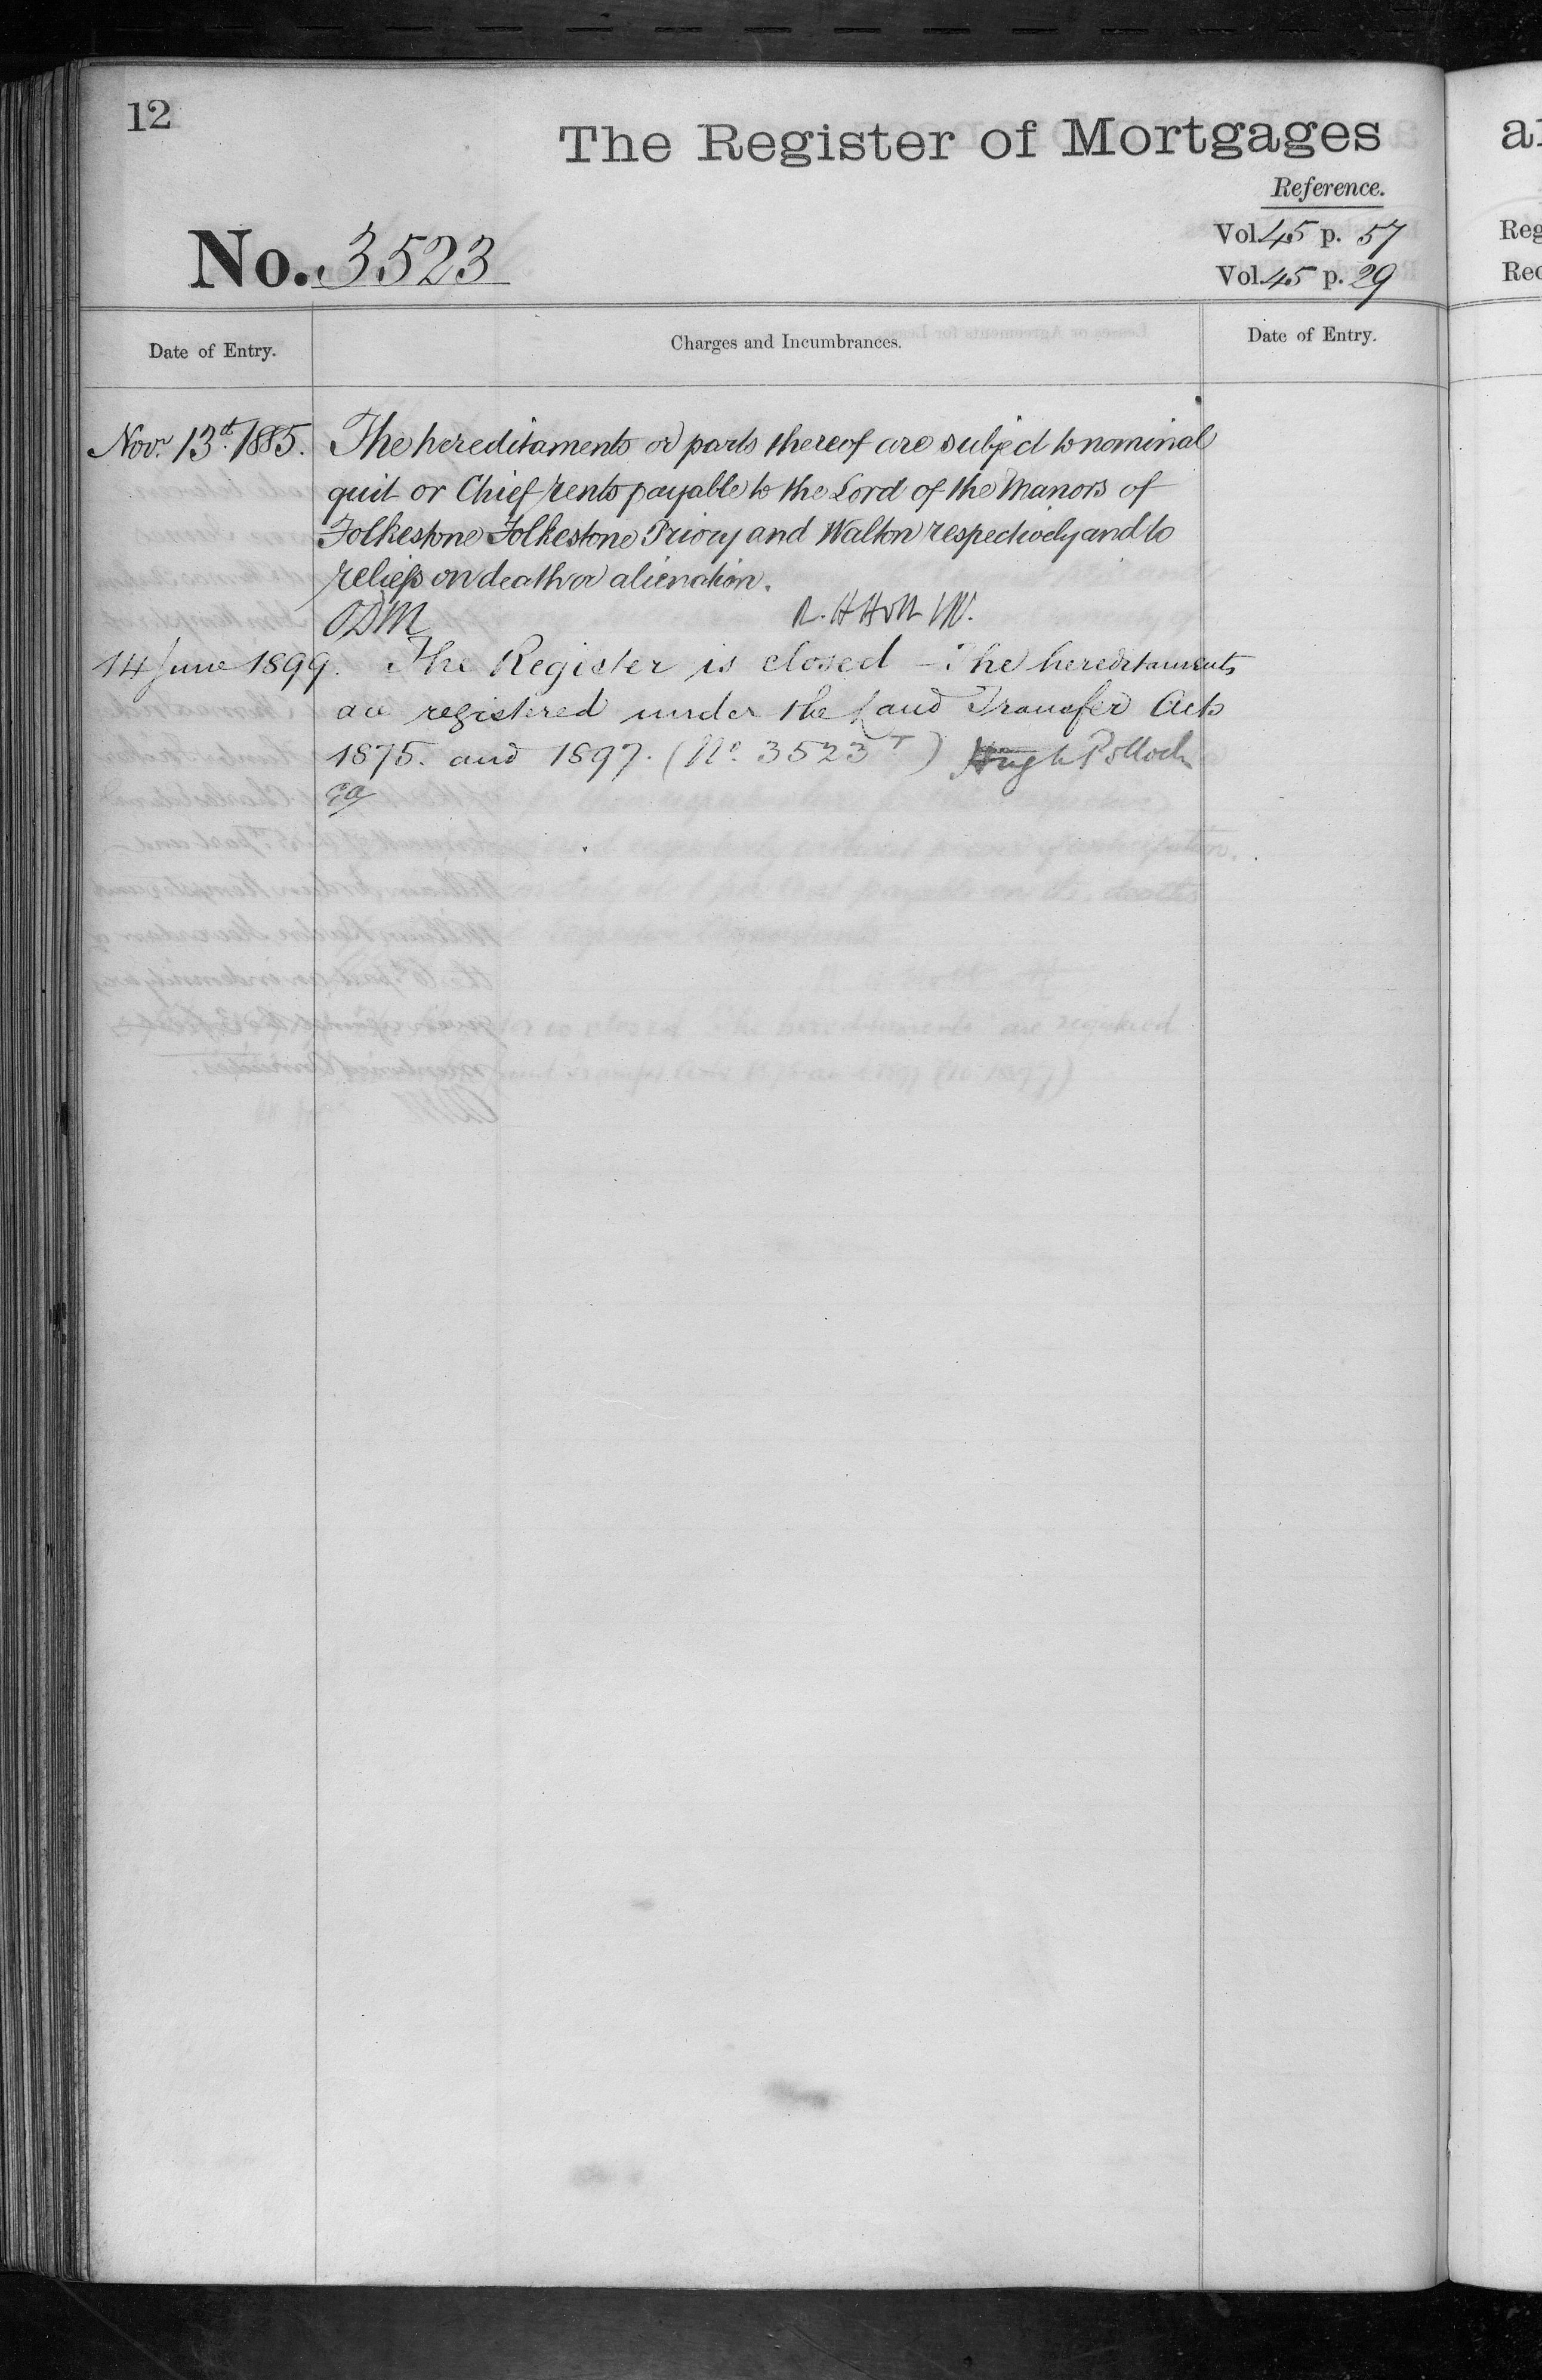 12
The Register of Mortgages
Reference.
No. 3523
Vol. 45 p. 57
Vol. 45 p. 29
Date of Entry.
Charges and Incumbrances.
Date of Entry.
Novr. 13th. 1885. The hereditaments or parts thereof are subject to nominal
quit or Chief rents payable to the Lord of the Manors of
Folkestone Folkestone Priory and Walton respectively and to
reliefs on death or alienation.
ODM R. H Holt
14 June 1899. The Register is closed – The hereditaments
are registered under the Land Transfer Acts
1875. and 1897. (No. 3523 T) Hugh Pollock
Reg
Rec